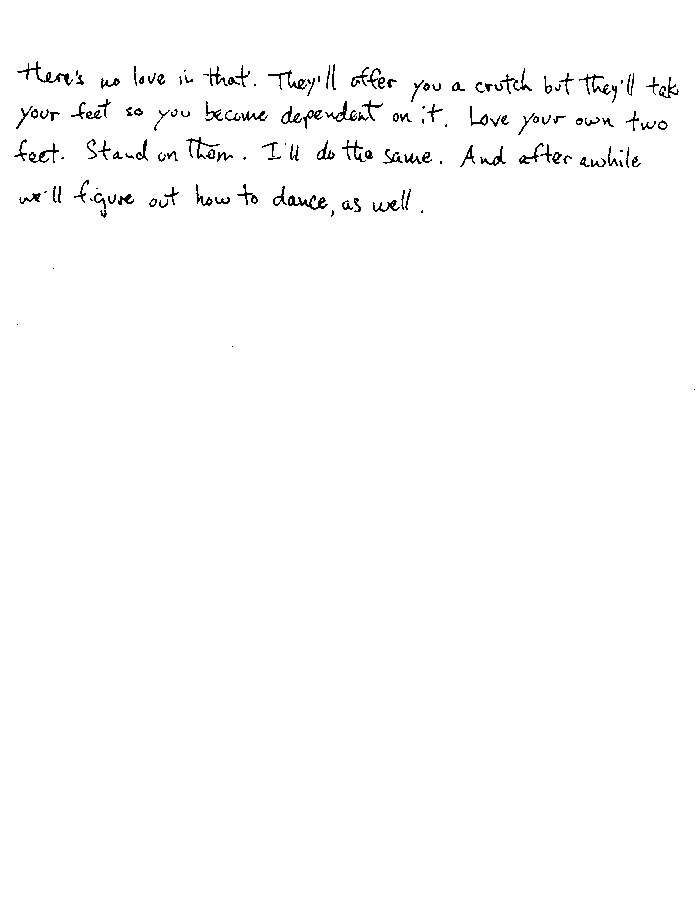 There's no love in that. They'll offer you a crutch but they'll take
your feet so you become dependent on it. Love your own two
feet. Stand on them. I'll do the same. And after awhile
we'll figure out how to dance, as well.